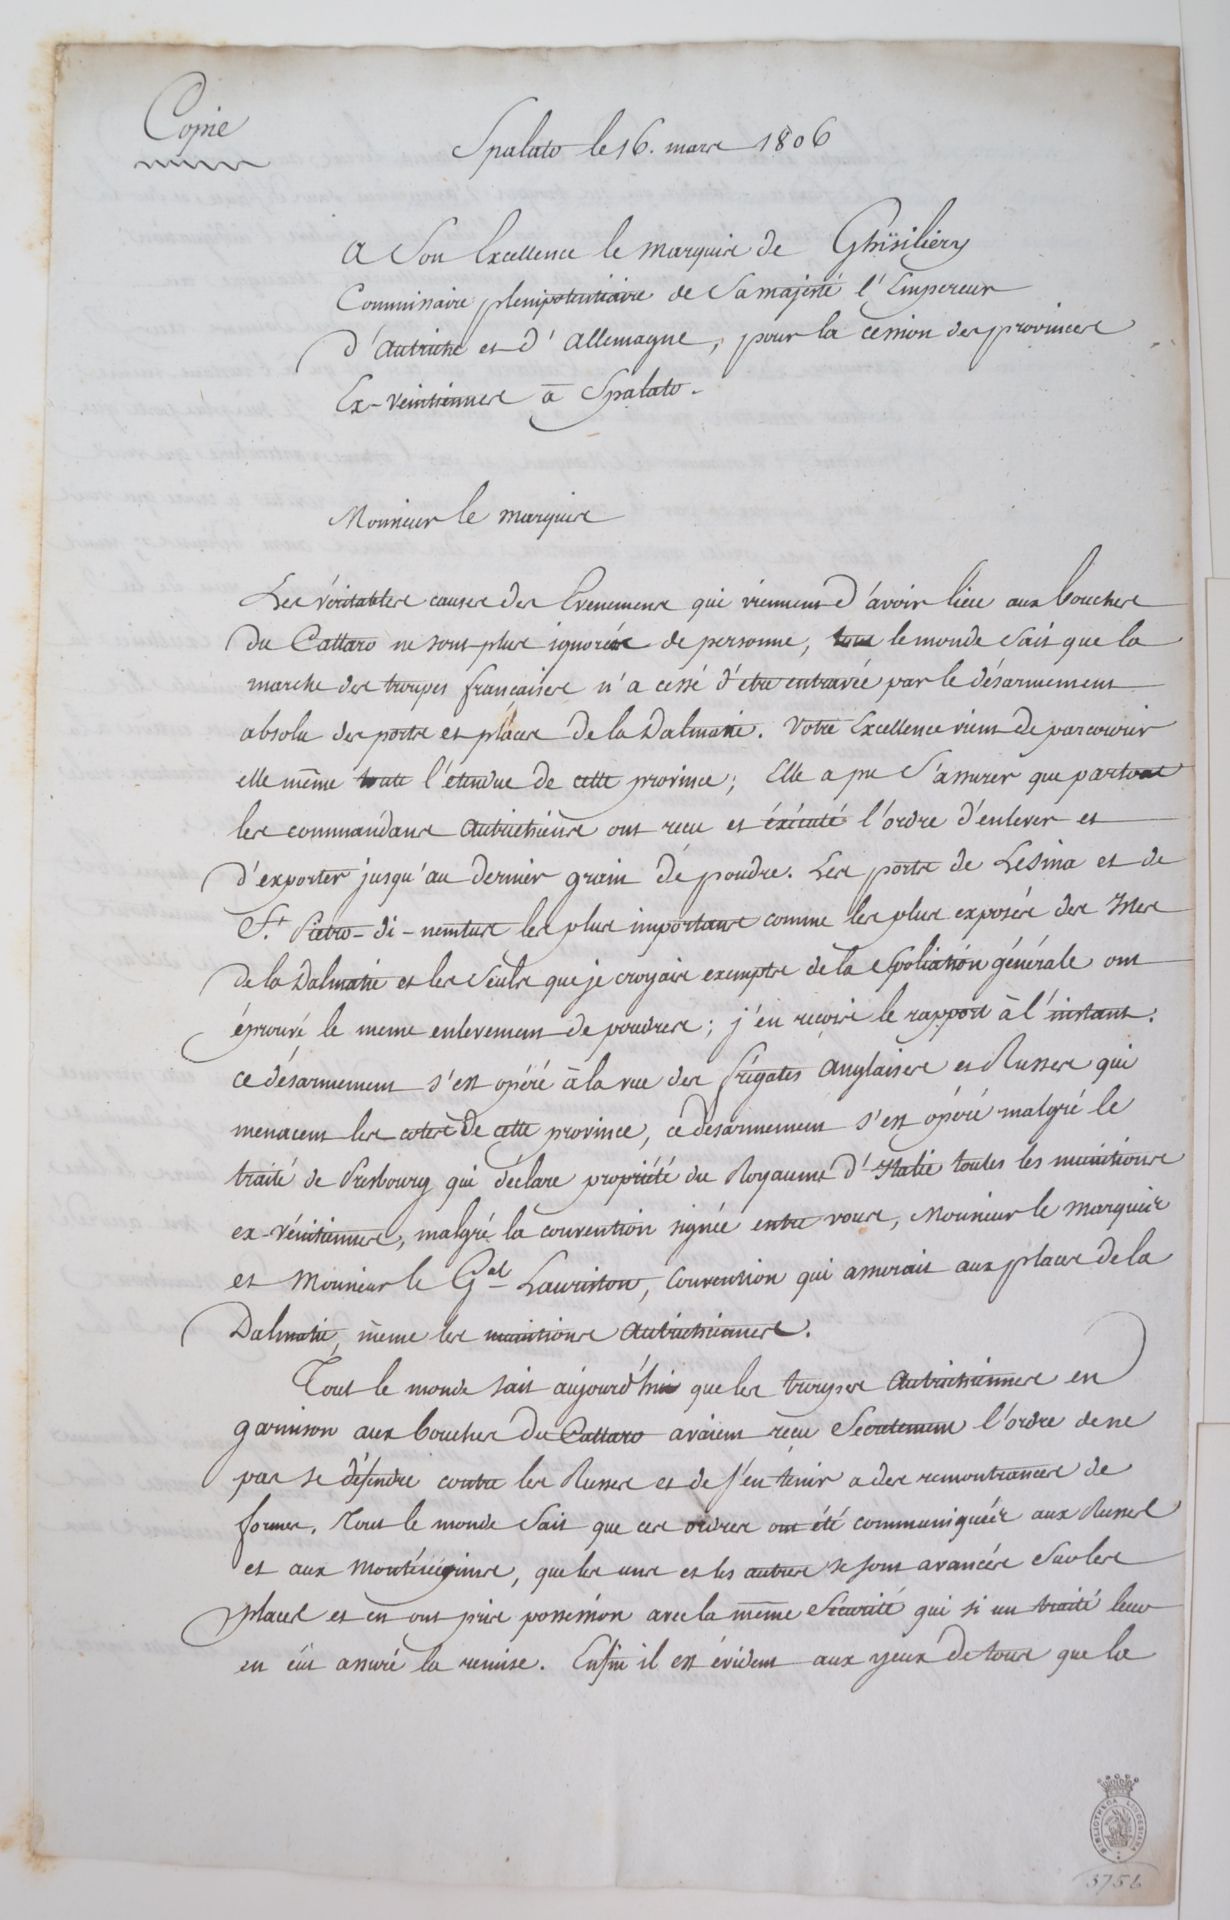 Copie
Spalato le 16. mars 1806
A Son Excellence le marquis de Ghïsiliéry
Commissaire plenipotentiaire de Sa majesté l'Empereur
d'Autriche et d'Allemagne, pour la cession des provinces
Ex-Venitiennes à Spalato.
Monsieur le marquis
Les véritables causes des Evenemens qui viennent d'avoir lieu aux bouches
du Cattaro ne sont plus ignorées de personne, tout le monde sait que la
marche des troupes françaises n'a cessé d'être entravée par le désarmement
absolu des ports et places de la Dalmatie. Votre Excellence vient de parcourir
elle même toute l'étendue de cette province; Elle a pu S'assurer que partout
les commandans Autrichiens ont reçu et éxécuté l'ordre d'enlever et
d'exporter jusqu'au dernier grain de poudre. Les ports de Lesina et de
St. Pietro-di-nembo les plus importans comme les plus exposés des Isles
de la Dalmatie et les Seuls que je croyais exempts de la Spoliation générale ont
éprouvé le meme enlevement de poudres; j'en reçois le rapport à l'instant.
ce désarmement s'est opéré à la vue des frégates Anglaises et Russes qui
menacent les cotes de cette province, ce desarmement s'est opéré malgré le
traité de Presbourg qui déclare propriété du Royaume d'Italie toutes les munitions
ex-vénitiennes, malgré la convention signée entre vous, Monsieur le Marquis
et Monsieur le Gal Lauriston, Convention qui assurait aux places de la
Dalmatie, même les munitions Autrichiennes.
Tout le monde sait aujourd'hui que les troupes Autrichiennes en
garnison aux bouches du Cattaro avaient reçu Secretement l'ordre de ne
pas se défendre contre les Russes et de s'en tenir a des remontrances de
formes. Tout le monde Sait que ces ordres ont été communiqués aux Russes
et aux Monténégrins, que les uns et les autres se sont avancés Sur les
places et en ont pris possession avec la même Sécurité qui si un traité leur
en eut assuré la remise. Enfin il est évident aux yeux de tous que la
BIBLIOTHECA LINDESIANA